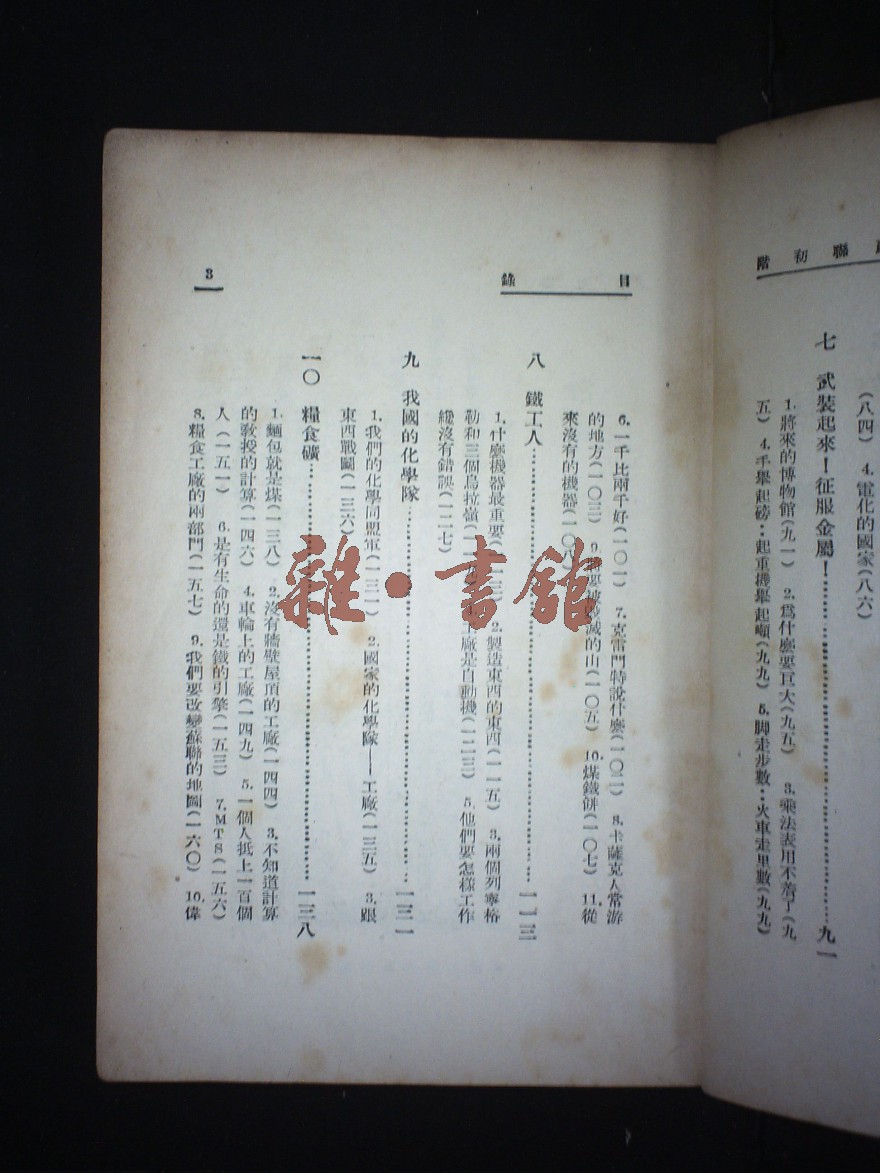 聯初階
(八四) 4.電化的國家(八六)
七 武裝起來!征服金屬!……九一
1.將來的博物館(九一) 2.爲什麼要巨大(九五) 3.乘法表用不着了(九
五) 4.千舉起磅··起重機舉起噸(九九) 5.脚走步數··火車走里數(九九)
目錄
3
6.一千比兩千好(一〇一) 7.克雷門特說什麼(一〇二) 8.卡薩克人常游
的地方(一〇三) 9.要被滅的山(一〇五) 10.煤鐵餅(一〇七) 11.從
來沒有的機器(一〇八)
八 鐵工人……一一三
1.什麼機器最重要(一一三) 2.製造東西的東西(一一五) 3.兩個列寧格
勒和三個烏拉嶺 工廠是自動機(一二三) 5.他們要怎樣工作
纔沒有錯誤(一二七)
九 我國的化學隊……一三一
1.我們的化學同盟軍(一三一) 2.國家的化學隊——工廠(一三五) 3.跟
東西戰鬭(一三六)
一〇 糧食礦……一三八
1.麵包就是煤(一三八) 2.沒有牆壁屋頂的工廠(一四四) 3.不知道計算
的敎授的計算(一四六) 4.車輪上的工廠(一四九) 5.一個人抵上一百個
人(一五一) 6.是有生命的還是鐵的引擎(一五三) 7.MTS(一五六)
8.糧食工廠的兩部門(一五七) 9.我們要改變蘇聯的地圖(一六〇) 10.偉
雜·書館